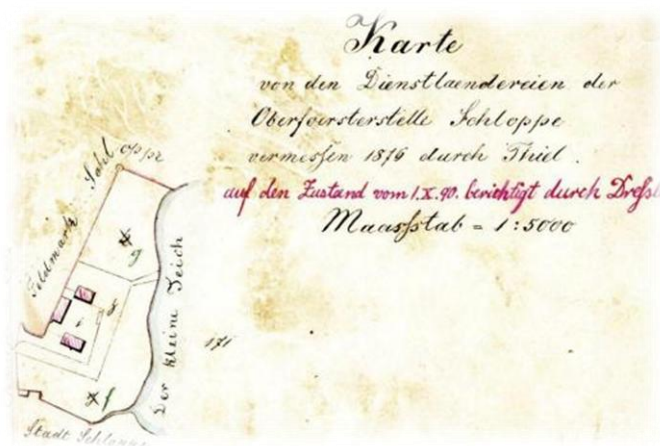 Karte
von den Dienstlaendereien der
Oberfoersterstelle Schloppe
vermessen 1876 durch Thiel.
auf den Zustand vom 1.X.90. berichtigt durch
Maaſsstab = 1:5000
Feldmark Schloppe
g
f
Der kleine Teich
171
Stadt